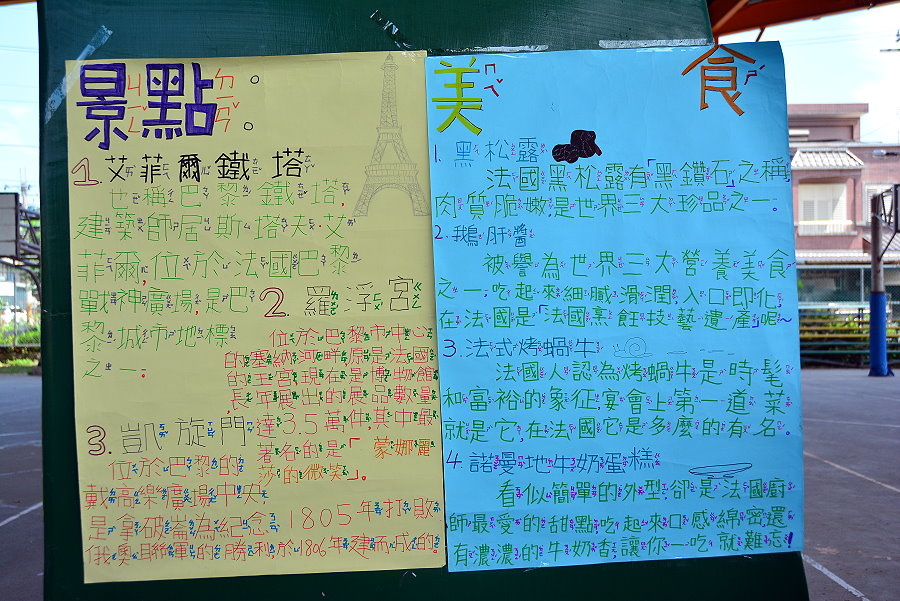 景點:
1.艾菲爾鐵塔
也稱巴黎鐵塔,
建築師居斯塔夫艾
菲爾,位於法國巴黎
戰神廣場,是巴
黎城市地標
之一。
2.羅浮宮
位於巴黎市中心
的塞納河畔原是法國
的王宮現在是博物館
長年展出的展品數量
達3.5萬件,其中最
著名的是「蒙娜麗
莎的微笑」。
3.凱旋門
位於巴黎的
戴高樂廣場中央
是拿破崙為紀念1805年打敗
俄奧聯軍的勝利,於1806年建而成的。
美食
1.黑松露
法國黑松露有「黑鑽石」之稱
肉質脆嫩,是世界三大珍品之一。
2.鵝肝醬
被譽為世界三大營養美食
之一,吃起來細膩滑潤,入口即化,
在法國是「法國烹飪技藝遺產」呢~
3.法式烤蝸牛
法國人認為烤蝸牛是時髦
和富裕的象征,宴會上第一道菜
就是它,在法國它是多麼的有名。
4.諾曼地牛奶蛋糕
看似簡單的外型,卻是法國廚
師最愛的甜點吃起來口感綿密還
有濃濃的牛奶香讓你一吃就難忘!